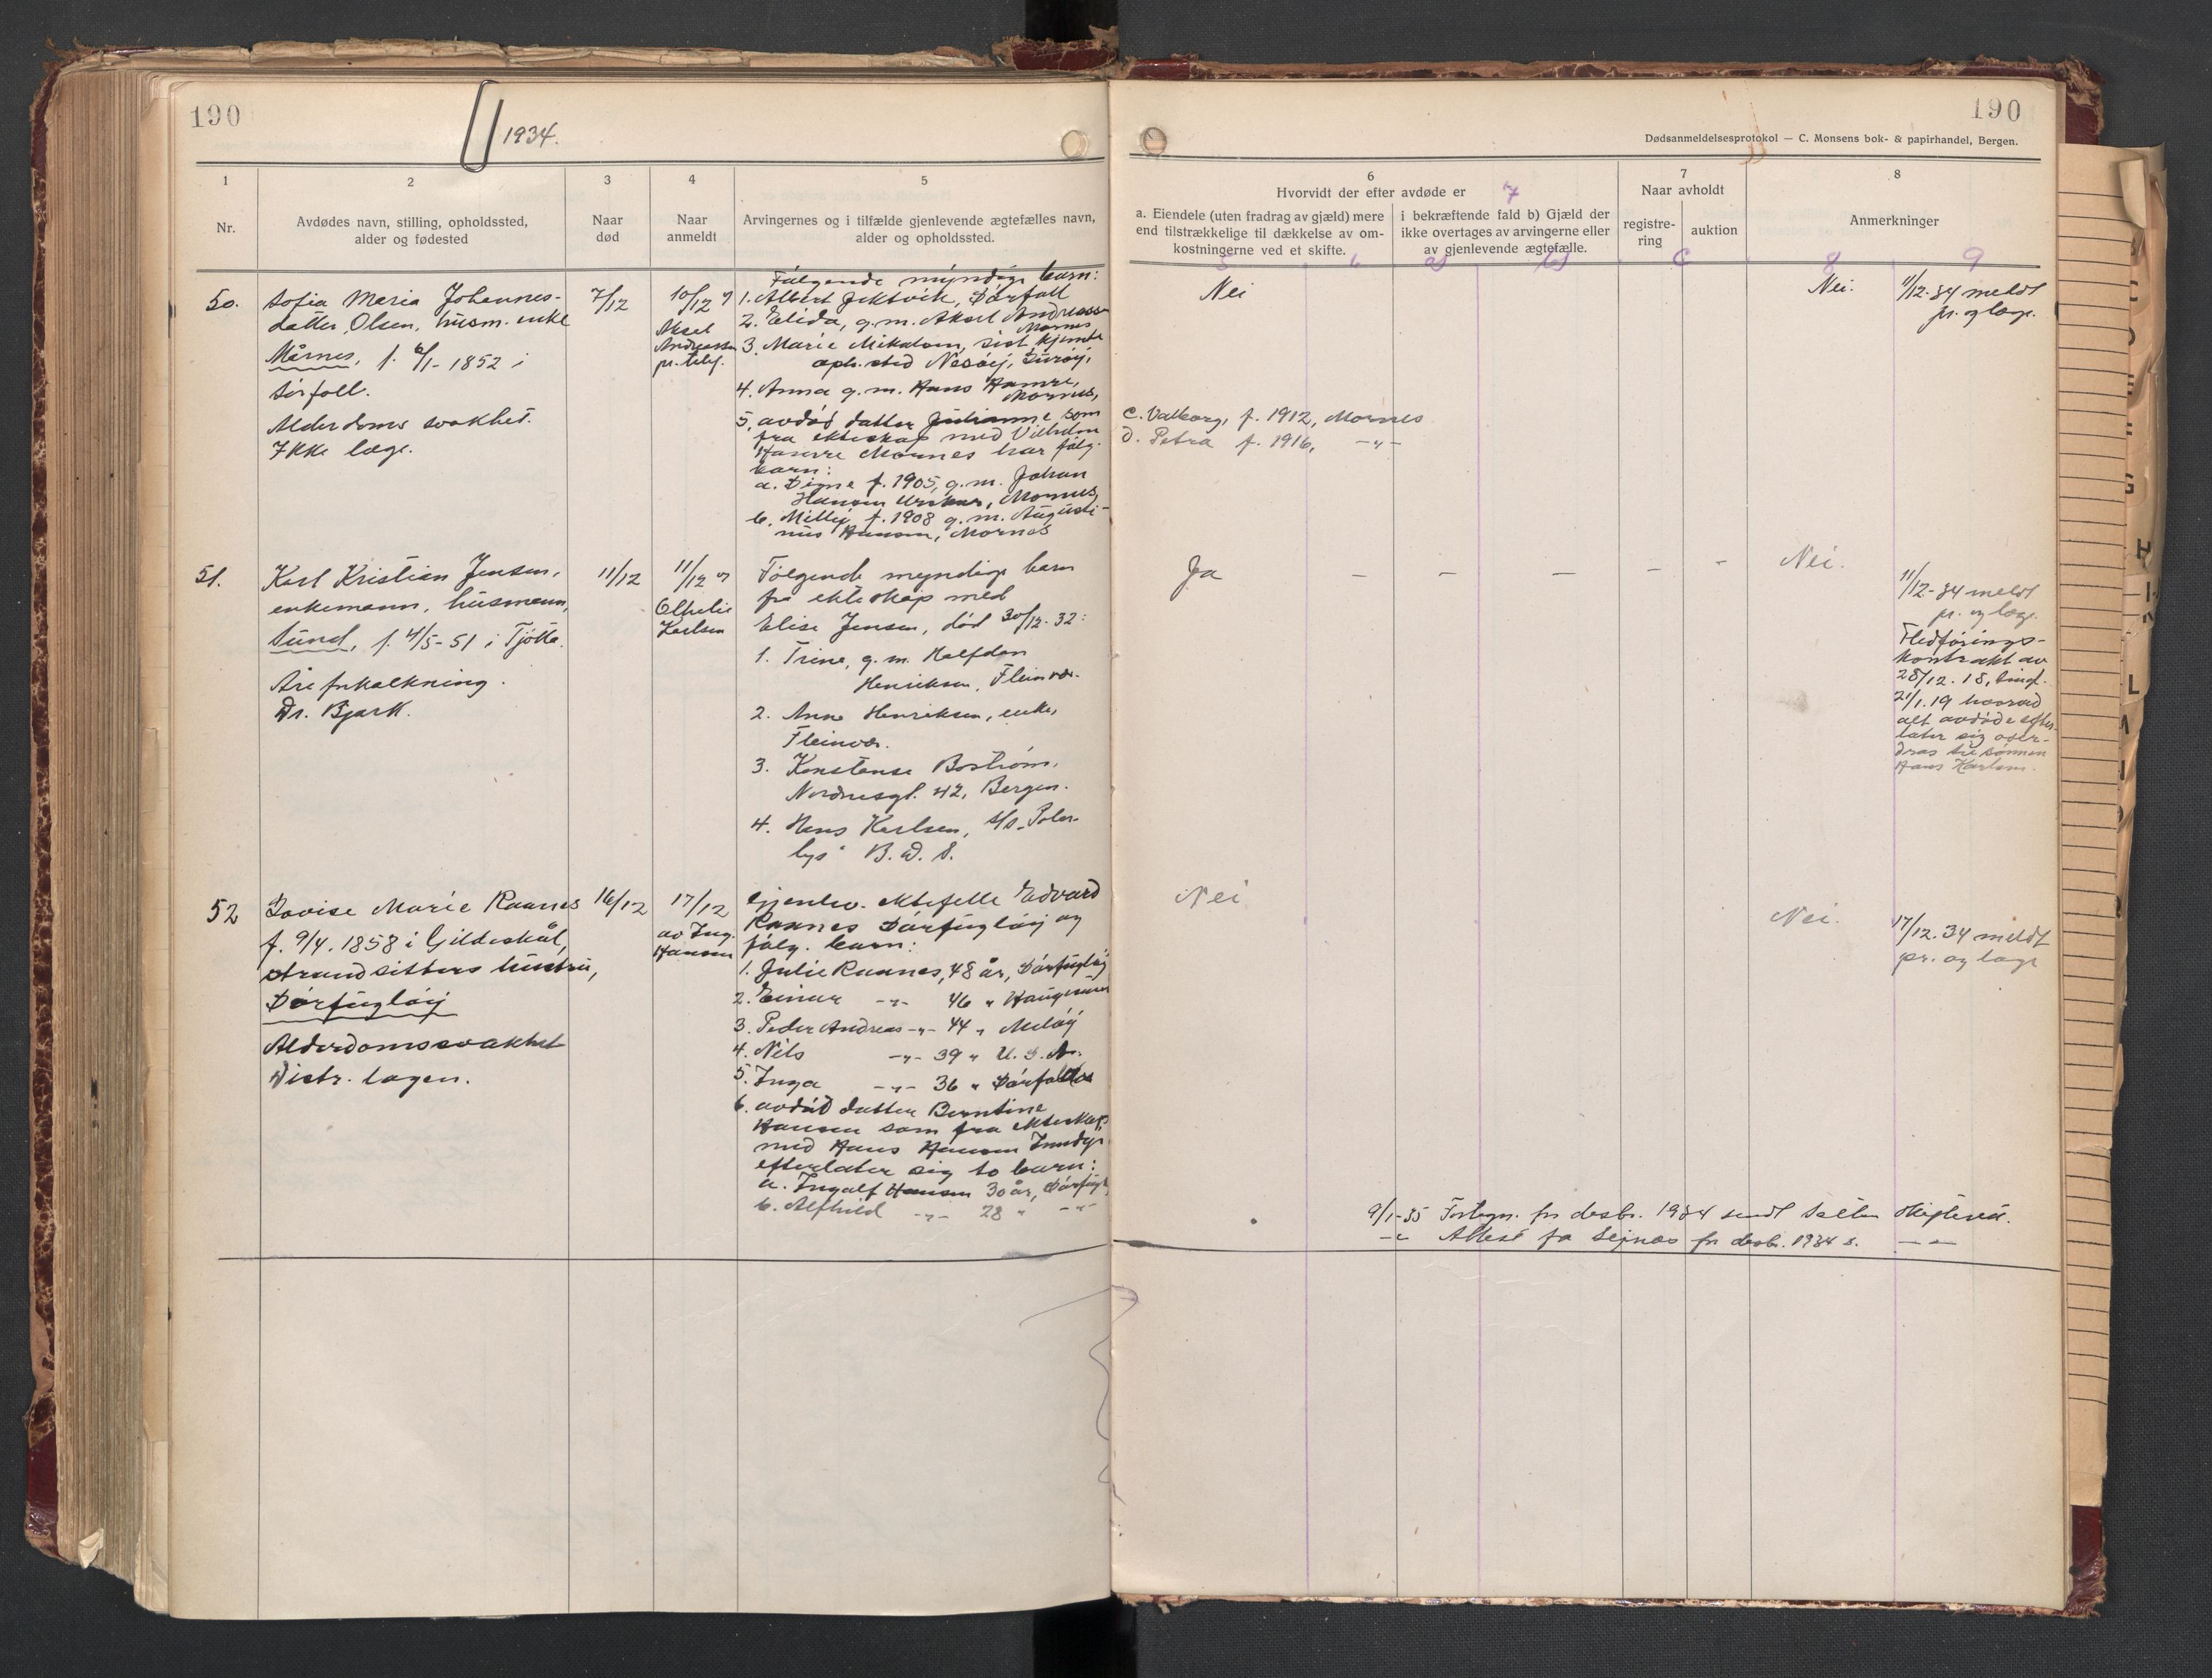 190
1934.
190
Dødsanmeldelsesprotokol — C. Monsens bok- & papirhandel, Bergen.
1
Nr.
2
Avdødes navn, stilling, opholdssted,
alder og fødested
3
Naar
død
4
Naar
anmeldt
5
Arvingernes og i tilfælde gjenlevende ægtefælles navn,
alder og opholdssted.
6
Hvorvidt der efter avdøde er
7
a. Eiendele (uten fradrag av gjæld) mere
end tilstrækkelige til dækkelse av om-
kostningerne ved et skifte.
i bekræftende fald b) Gjæld der
ikke overtages av arvingerne eller
av gjenlevende ægtefælle.
7
Naar avholdt
registre-
ring
auktion
8
Anmerkninger
5 6 a) b) c 8 9
50.
Sofia Maria Johannes-
datter Olsen, husm. enke
Mårnes, f. /1-1852 i
Sørfoll.
Alderdoms svakhet.
Ikke læge.
7/12
10/12
Aksel
Andreassen
pr. telef.
Følgende myndige barn:
1. Albert Jektvik, Sørfoll
2. Elida, g.m. Aksel Andreassen
Mornes
3. Marie Mikalsen, sist kjente
oph.sted Nesøy, Lurøy,
4. Anna g.m. Hans Hamre,
Mornes,
5. avdød datter Julianne som
fra ekteskap med Vilhelm
Hamre Mornes har følg.
barn:
a. Signe f. 1905, g.m. Johan
Hansen, Mornes,
b. Milly, f. 1908 g.m. Augusti-
nus Hansen, Mornes
Nei
c. Valborg, f. 1912, Mornes
d. Petra f. 1916, -"-
Nei.
11/12-34 meldt
pr. og læge.
51.
Karl Kristian Jensen,
enkemann, husmann,
Sund, f. 4/5-51 i Tjøtta.
Åreforkalkning.
Dr. Bjark.
11/12
11/12 av
Othelie
Karlsen
Følgende myndige barn
fra ekteskap med
Elise Jensen, død 30/12-32:
1. Trine, g.m. Halfdan
Henriksen, Fleinvær.
2. Anna Henriksen, enke,
Fleinvær.
3. Konstanse Boström,
Nordnesgt. 42, Bergen.
4. Hans Karlsen, s/s „Polar-
lys" B.D.S.
Ja
- - - - -
Nei.
11/12-34 meldt
pr. og læge.
Fledførings-
kontrakt av
28/12.18, tingl.
21/1.19 hvorved
alt avdøde efter-
later sig over-
dras til sønnen
Hans Karlsen.
52
Lovise Marie Raanes
f. 9/4.1858 i Gildeskål,
strandsitters hustru,
Sørfugløy
Alderdomssvakhet
Distr. lægen.
16/12
17/12
av Ing.
Hansen
Gjenlev. ektefelle Edvard
Raanes Sørfugløy og
følg. barn:
1. Julie Raanes, 48 år, Sørfugløy
2. Einar -"- 46 " Haugesund
3. Peder Andreas -"- 44 " Meløy
4. Nils -"- 39 " U.S.A.
5. Inga -"- 36 "
6. avdød datter Berntine
Hansen som fra ekteskap
med Hans Hansen Inndyr
efterlater sig to barn:
a. Ingalf Hansen 30 år, Sørfugl.
b. Alfhild -"- 28 " -"-
Nei
Nei.
17/12.34 meldt
pr. og læge
9/1-35 Fortegn. for desbr. 1934 sendt Salten skifterett.
-"- Attest fra for desbr. 1934 s. -"-